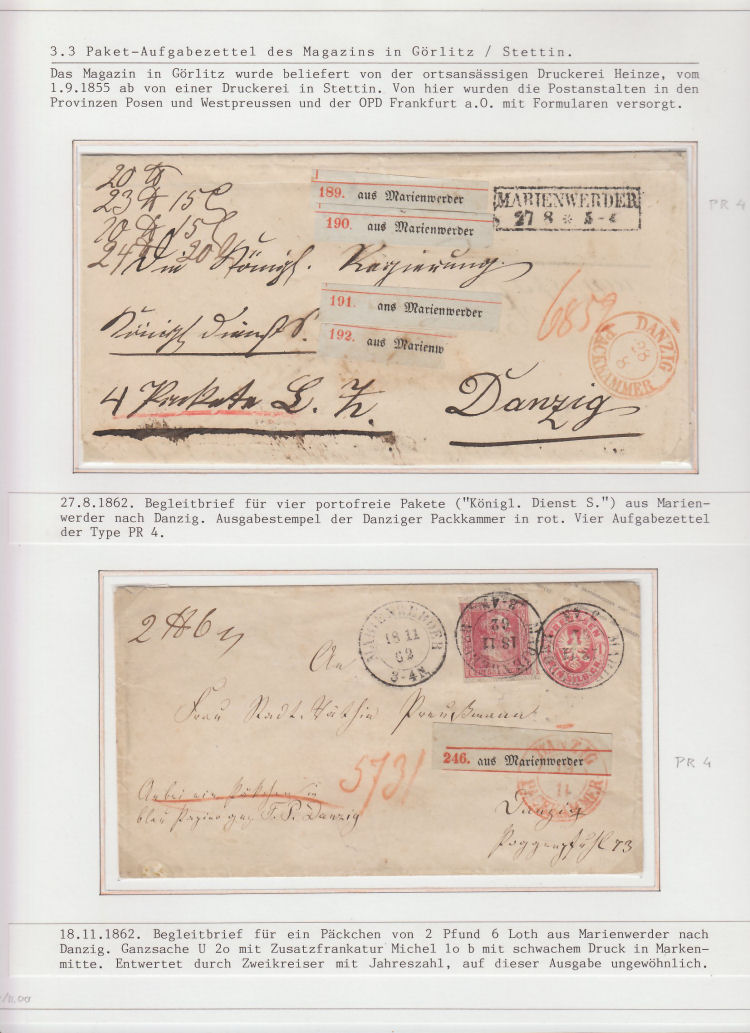 3.3 Paket-Aufgabezettel des Magazins in Görlitz / Stettin.
Das Magazin in Görlitz wurde beliefert von der ortsansässigen Druckerei Heinze, vom
1.9.1855 ab von einer Druckerei in Stettin. Von hier wurden die Postanstalten in den
Provinzen Posen und Westpreussen und der OPD Frankfurt a.O. mit Formularen versorgt.
189. aus Marienwerder
MARIENWERDER
27 8
PR 4
190. aus Marienwerder
Die Königl. Regierung
191. aus Marienwerder
6859
Königl Dienst S.
192. aus Marienw
DANZIG
28
8
PACKKAMMER
4 Packete
Danzig
27.8.1862. Begleitbrief für vier portofreie Pakete ("Königl. Dienst S.") aus Marien-
werder nach Danzig. Ausgabestempel der Danziger Packkammer in rot. Vier Aufgabezettel
der Type PR 4.
MARIENWERDER
18 11
62
3-4N
An
Frau Stadt-Räthin Preußmann
246. aus Marienwerder
PR 4
5731
DANZIG
11
Anbei ein Päckchen in
blau Papier gez F. P. Danzig
Danzig
Poggenpfuhl 73
18.11.1862. Begleitbrief für ein Päckchen von 2 Pfund 6 Loth aus Marienwerder nach
Danzig. Ganzsache U 2o mit Zusatzfrankatur Michel 1o b mit schwachem Druck in Marken-
mitte. Entwertet durch Zweikreiser mit Jahreszahl, auf dieser Ausgabe ungewöhnlich.